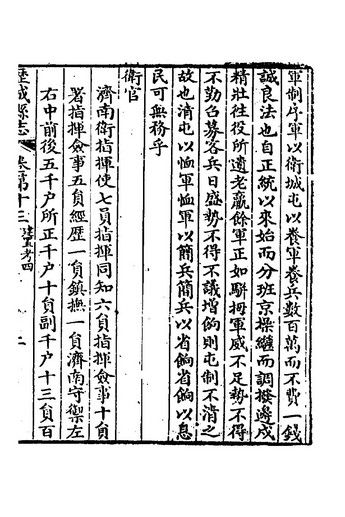 軍制序軍以衛城屯以養軍養兵數百萬而不費一錢
誠良法也自正統以來始而分班京操繼而調撥邊戍
精壯往役所遺老羸餘軍正如駢拇軍威不足勢不得
不勤召募客兵日盛勢不得不議增餉則屯制不清之
故也清屯以恤軍恤軍以簡兵簡兵以省餉省餉以息
民可無務乎
衛官
濟南衛指揮使七員指揮同知六員指揮僉事十員
署指揮僉事五員經歷一員鎮撫一員濟南守禦左
右中前後五千户所正千户十員副千户十三員百
歷城縣志 卷第十三 建置考四 二